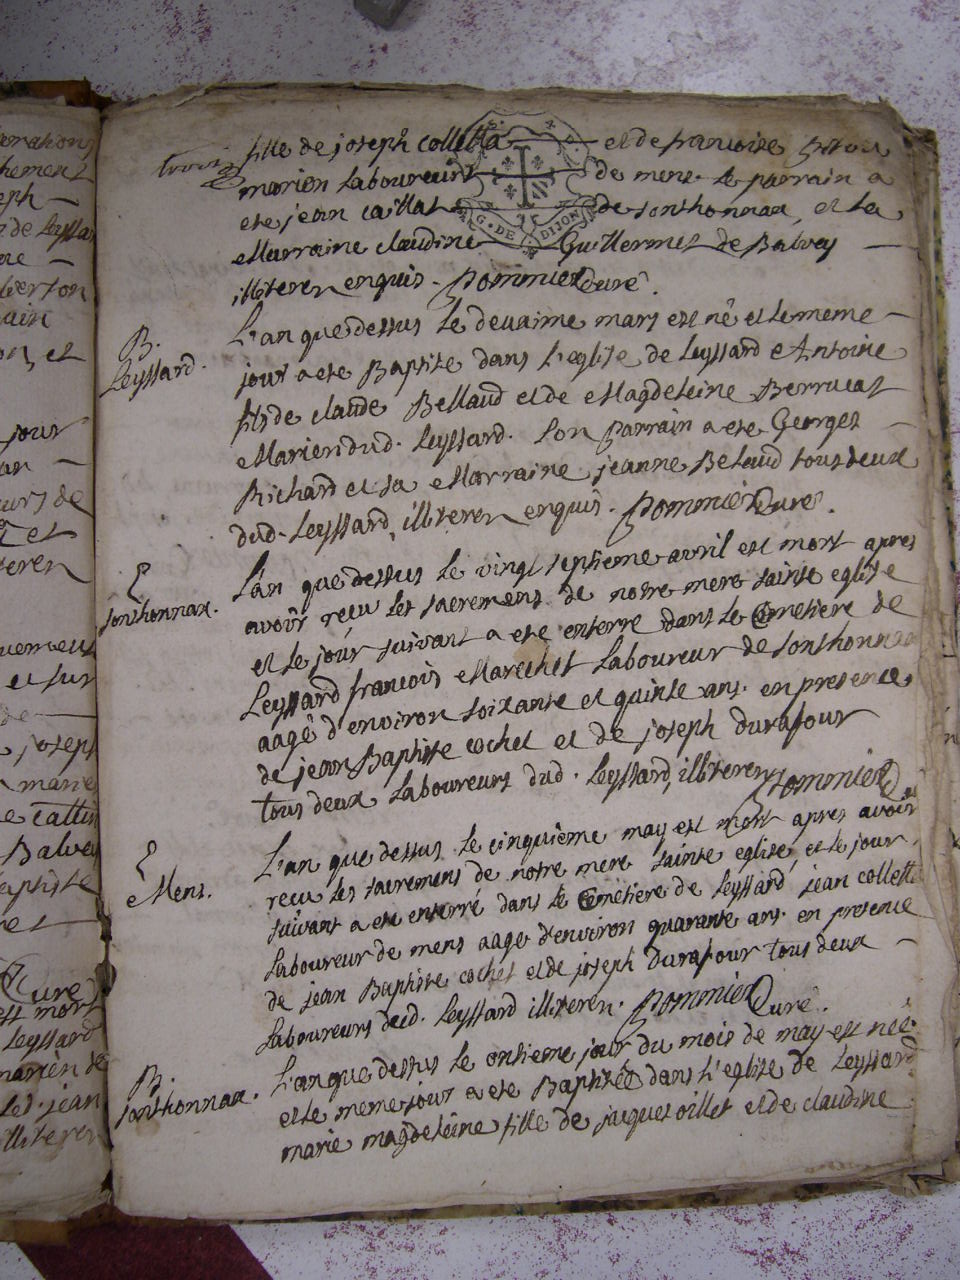 fille de joseph colletta et de francoise
marien Laboureurs de mens. Le parrain a
ete jean caillat de sonthonnax, et la
Marraine claudine Guillermet de Balvey
illiteren enquis. Pommier Curé.
G. DE DIJON
B.
Leyssard.
L'an que dessus Le deuxime mars est né et le meme
jour a ete Baptise dans L'eglise de Leyssard Antoine
fils de claude Bellaud et de Magdeleine Berrucat
Marien dud. Leyssard. Son parrain a ete Georges
Richard et sa Marraine jeanne Belaud tous deux
dud. Leyssard, illiteren enquis. Pommier Curé.
E
sonthonnax.
L'an que dessus Le vingt septieme avril est mort apres
avoir reçu les sacremens de notre mere sainte eglise
et le jour suivant a ete enterré dans le Cemetiere de
Leyssard francois Marechet Laboureur de Sonthonnax
aagé d'environ soixante et quinse ans. en presence
de jean Baptiste cochet et de joseph durafour
tous deux Laboureurs dud. Leyssard, illiteren Pommier C
E
Mens.
L'an que dessus Le cinquième may est mort apres avoir
recu les sacremens de notre mere sainte eglise, et le jour
suivant a ete enterré dans le Cemetiere de Leyssard jean collett
Laboureur de mens aagé d'environ quarante ans. en presence
de jean Baptiste cochet et de joseph Durafour tous deux
Laboureurs dud. Leyssard illiteren. Pommier Curé.
B.
Sonthonnax.
L'an que dessus Le onsieme jour du mois de may est née
et le meme jour a ete Baptisée dans L'eglise de Leyssard
marie magdeleine fille de jacques oillet et de claudine